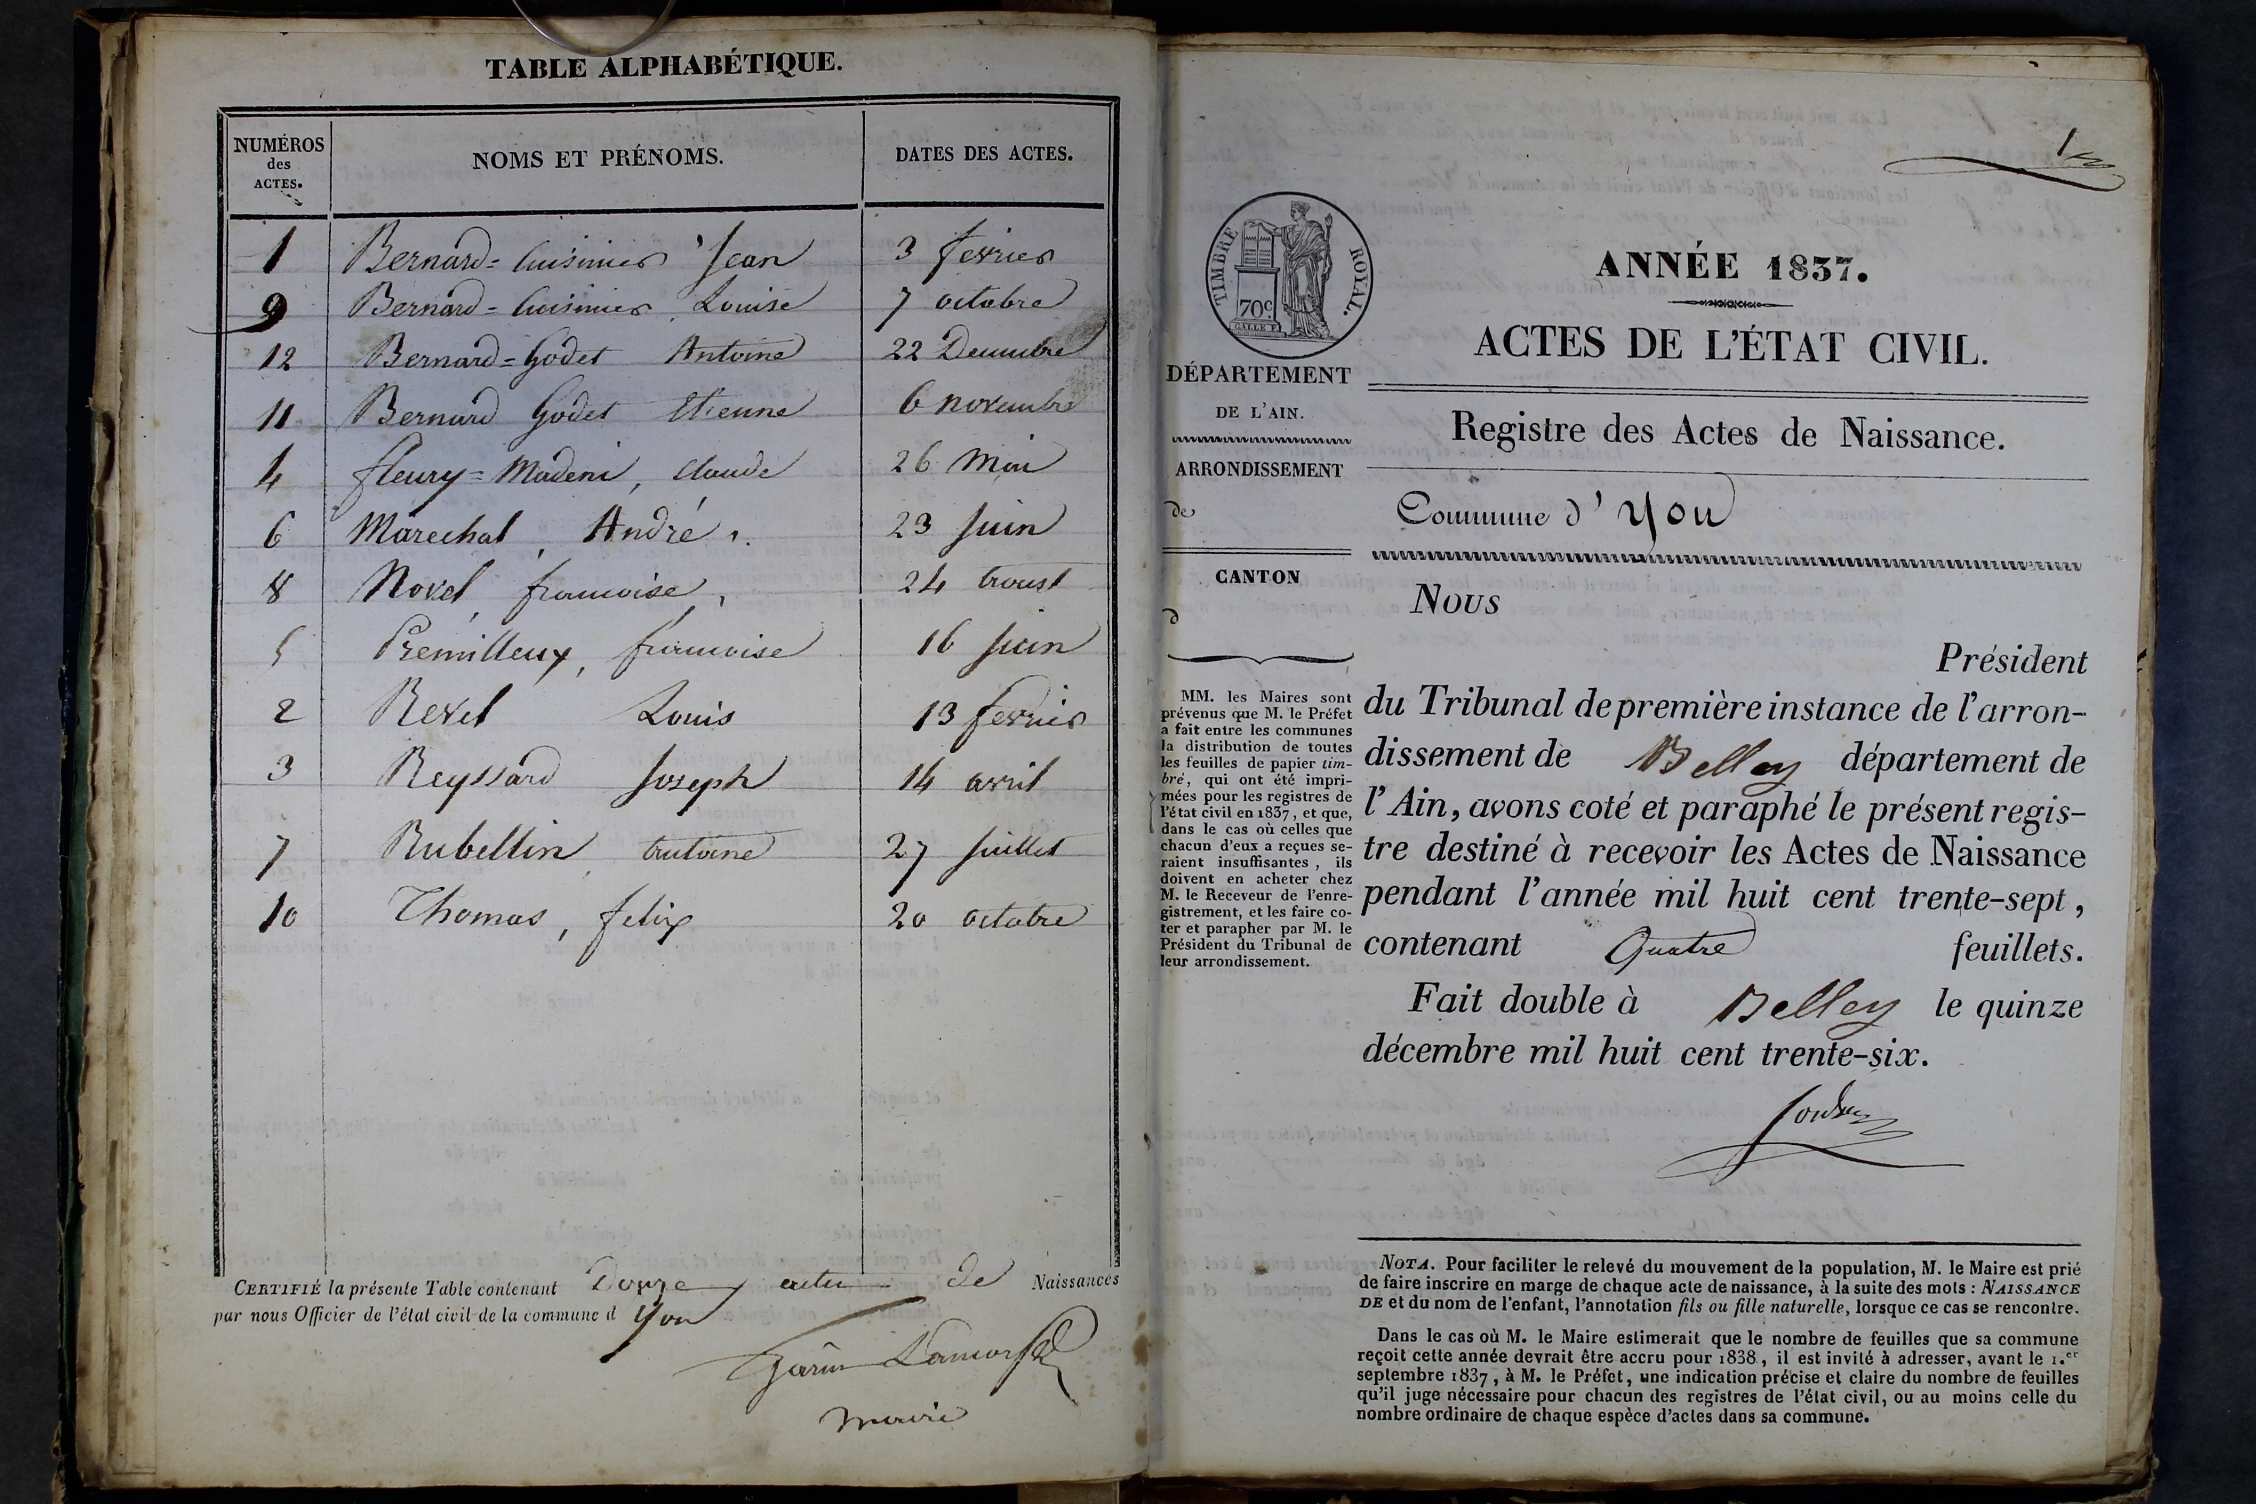 TABLE ALPHABÉTIQUE.
NUMÉROS des ACTES. NOMS ET PRÉNOMS. DATES DES ACTES.
1 Bernard=Cuisinier Jean 3 fevrier
9 Bernard=Cuisinier Louise 7 octobre
12 Bernard=Godet Antoine 22 Decembre
11 Bernard Godet Etienne 6 novembre
4 fleury=Madeni, Claude 26 Mai
6 Marechal, André. 23 Juin
8 Novel, francoise, 24 Aoust
5 Premilleux, francoise 16 Juin
2 Revel Louis 13 fevrier
3 Reyssard Joseph 14 avril
7 Rubellin, Antoine 27 Juillet
10 Thomas, felix 20 octobre
CERTIFIÉ la présente Table contenant Douze actes de Naissances
par nous Officier de l'état civil de la commune d Yon
Garin
maire
1
TIMBRE ROYAL.
70c.
ANNÉE 1837.
ACTES DE L'ÉTAT CIVIL.
DÉPARTEMENT
DE L'AIN.
Registre des Actes de Naissance.
ARRONDISSEMENT
de
Commune d'Yon
CANTON
d
MM. les Maires sont
prévenus que M. le Préfet
a fait entre les communes
la distribution de toutes
les feuilles de papier tim-
bré, qui ont été impri-
mées pour les registres de
l'état civil en 1837, et que,
dans le cas où celles que
chacun d'eux a reçues se-
raient insuffisantes, ils
doivent en acheter chez
M. le Receveur de l'enre-
gistrement, et les faire co-
ter et parapher par M. le
Président du Tribunal de
leur arrondissement.
Nous
Président
du Tribunal de première instance de l'arron-
dissement de Belley département de
l'Ain, avons coté et paraphé le présent regis-
tre destiné à recevoir les Actes de Naissance
pendant l'année mil huit cent trente-sept,
contenant Quatre feuillets.
Fait double à Belley le quinze
décembre mil huit cent trente-six.
NOTA. Pour faciliter le relevé du mouvement de la population, M. le Maire est prié
de faire inscrire en marge de chaque acte de naissance, à la suite des mots : NAISSANCE
DE et du nom de l'enfant, l'annotation fils ou fille naturelle, lorsque ce cas se rencontre.
Dans le cas où M. le Maire estimerait que le nombre de feuilles que sa commune
reçoit cette année devrait être accru pour 1838, il est invité à adresser, avant le 1.er
septembre 1837, à M. le Préfet, une indication précise et claire du nombre de feuilles
qu'il juge nécessaire pour chacun des registres de l'état civil, ou au moins celle du
nombre ordinaire de chaque espèce d'actes dans sa commune.